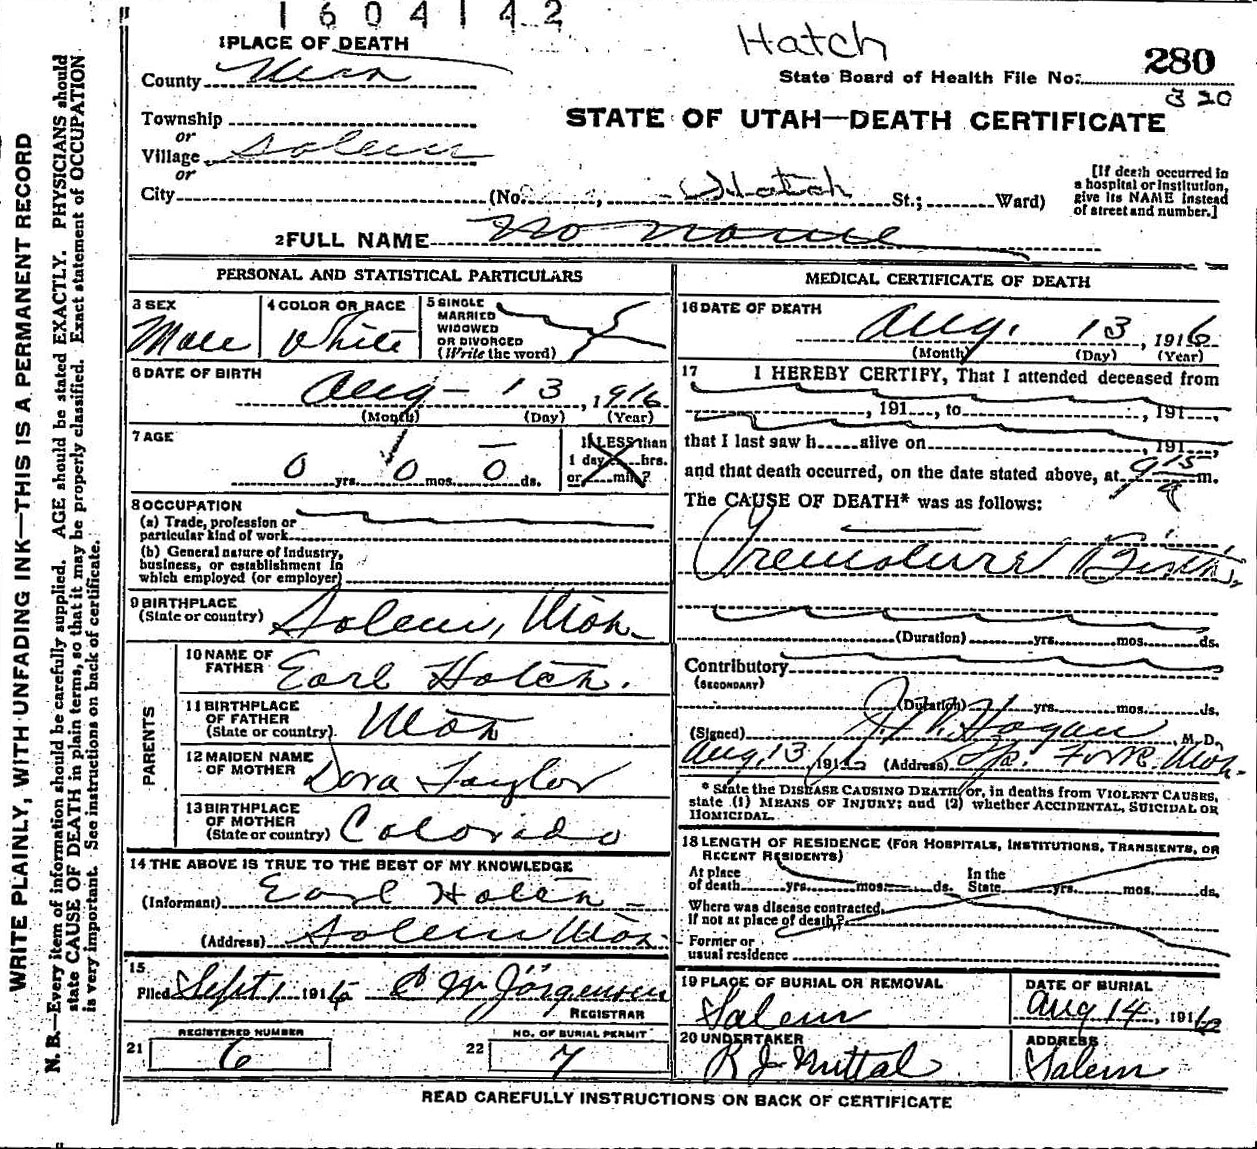 1604142
Hatch
1PLACE OF DEATH
County Utah
State Board of Health File No: 280
320
Township
or
Village Salem
or
City (No. Hatch St.; Ward)
STATE OF UTAH—DEATH CERTIFICATE
[If death occurred in
a hospital or institution,
give its NAME instead
of street and number.]
2FULL NAME No name
PERSONAL AND STATISTICAL PARTICULARS
3 SEX
Male
4 COLOR OR RACE
White
5 SINGLE
MARRIED
WIDOWED
OR DIVORCED
(Write the word)
6 DATE OF BIRTH
Aug - 13, 1916
(Month) (Day) (Year)
7 AGE
0 yrs. 0 mos. 0 ds.
If LESS than
1 day hrs.
or min?
8 OCCUPATION
(a) Trade, profession or
particular kind of work
(b) General nature of Industry,
business, or establishment in
which employed (or employer)
9 BIRTHPLACE
(State or country) Salem, Utah
PARENTS
10 NAME OF
FATHER Earl Hatch.
11 BIRTHPLACE
OF FATHER
(State or country) Utah
12 MAIDEN NAME
OF MOTHER Dora Taylor
13 BIRTHPLACE
OF MOTHER
(State or country) Colorado
14 THE ABOVE IS TRUE TO THE BEST OF MY KNOWLEDGE
(Informant) Earl Hatch
(Address) Salem Utah
15
Filed Sept 1 1916 C M Jörgensen
REGISTRAR
REGISTERED NUMBER
21 6
NO. OF BURIAL PERMIT
22 7
MEDICAL CERTIFICATE OF DEATH
16 DATE OF DEATH
Aug. 13, 1916
(Month) (Day) (Year)
17 I HEREBY CERTIFY, That I attended deceased from
, 191 , to , 191 ,
that I last saw h alive on , 191 ,
and that death occurred, on the date stated above, at 9 15 a m.
The CAUSE OF DEATH* was as follows:
Premature Birth
(Duration) yrs. mos. ds.
Contributory
(SECONDARY)
(Duration) yrs. mos. ds.
(Signed) Hogan, M. D.
Aug. 13, 1916 (Address) Sp. Fork. Utah
* State the DISEASE CAUSING DEATH or, in deaths from VIOLENT CAUSES,
state (1) MEANS OF INJURY; and (2) whether ACCIDENTAL, SUICIDAL OR
HOMICIDAL.
18 LENGTH OF RESIDENCE (FOR HOSPITALS, INSTITUTIONS, TRANSIENTS, OR
RECENT RESIDENTS)
At place
of death yrs. mos. ds.
In the
State yrs. mos. ds.
Where was disease contracted,
if not at place of death?
Former or
usual residence
19 PLACE OF BURIAL OR REMOVAL
Salem
DATE OF BURIAL
Aug 14, 1916
20 UNDERTAKER
R J Nuttal
ADDRESS
Salem
READ CAREFULLY INSTRUCTIONS ON BACK OF CERTIFICATE
WRITE PLAINLY, WITH UNFADING INK—THIS IS A PERMANENT RECORD
N. B.—Every item of information should be carefully supplied. AGE should be stated EXACTLY. PHYSICIANS should
state CAUSE OF DEATH in plain terms, so that it may be properly classified. Exact statement of OCCUPATION
is very important. See instructions on back of certificate.